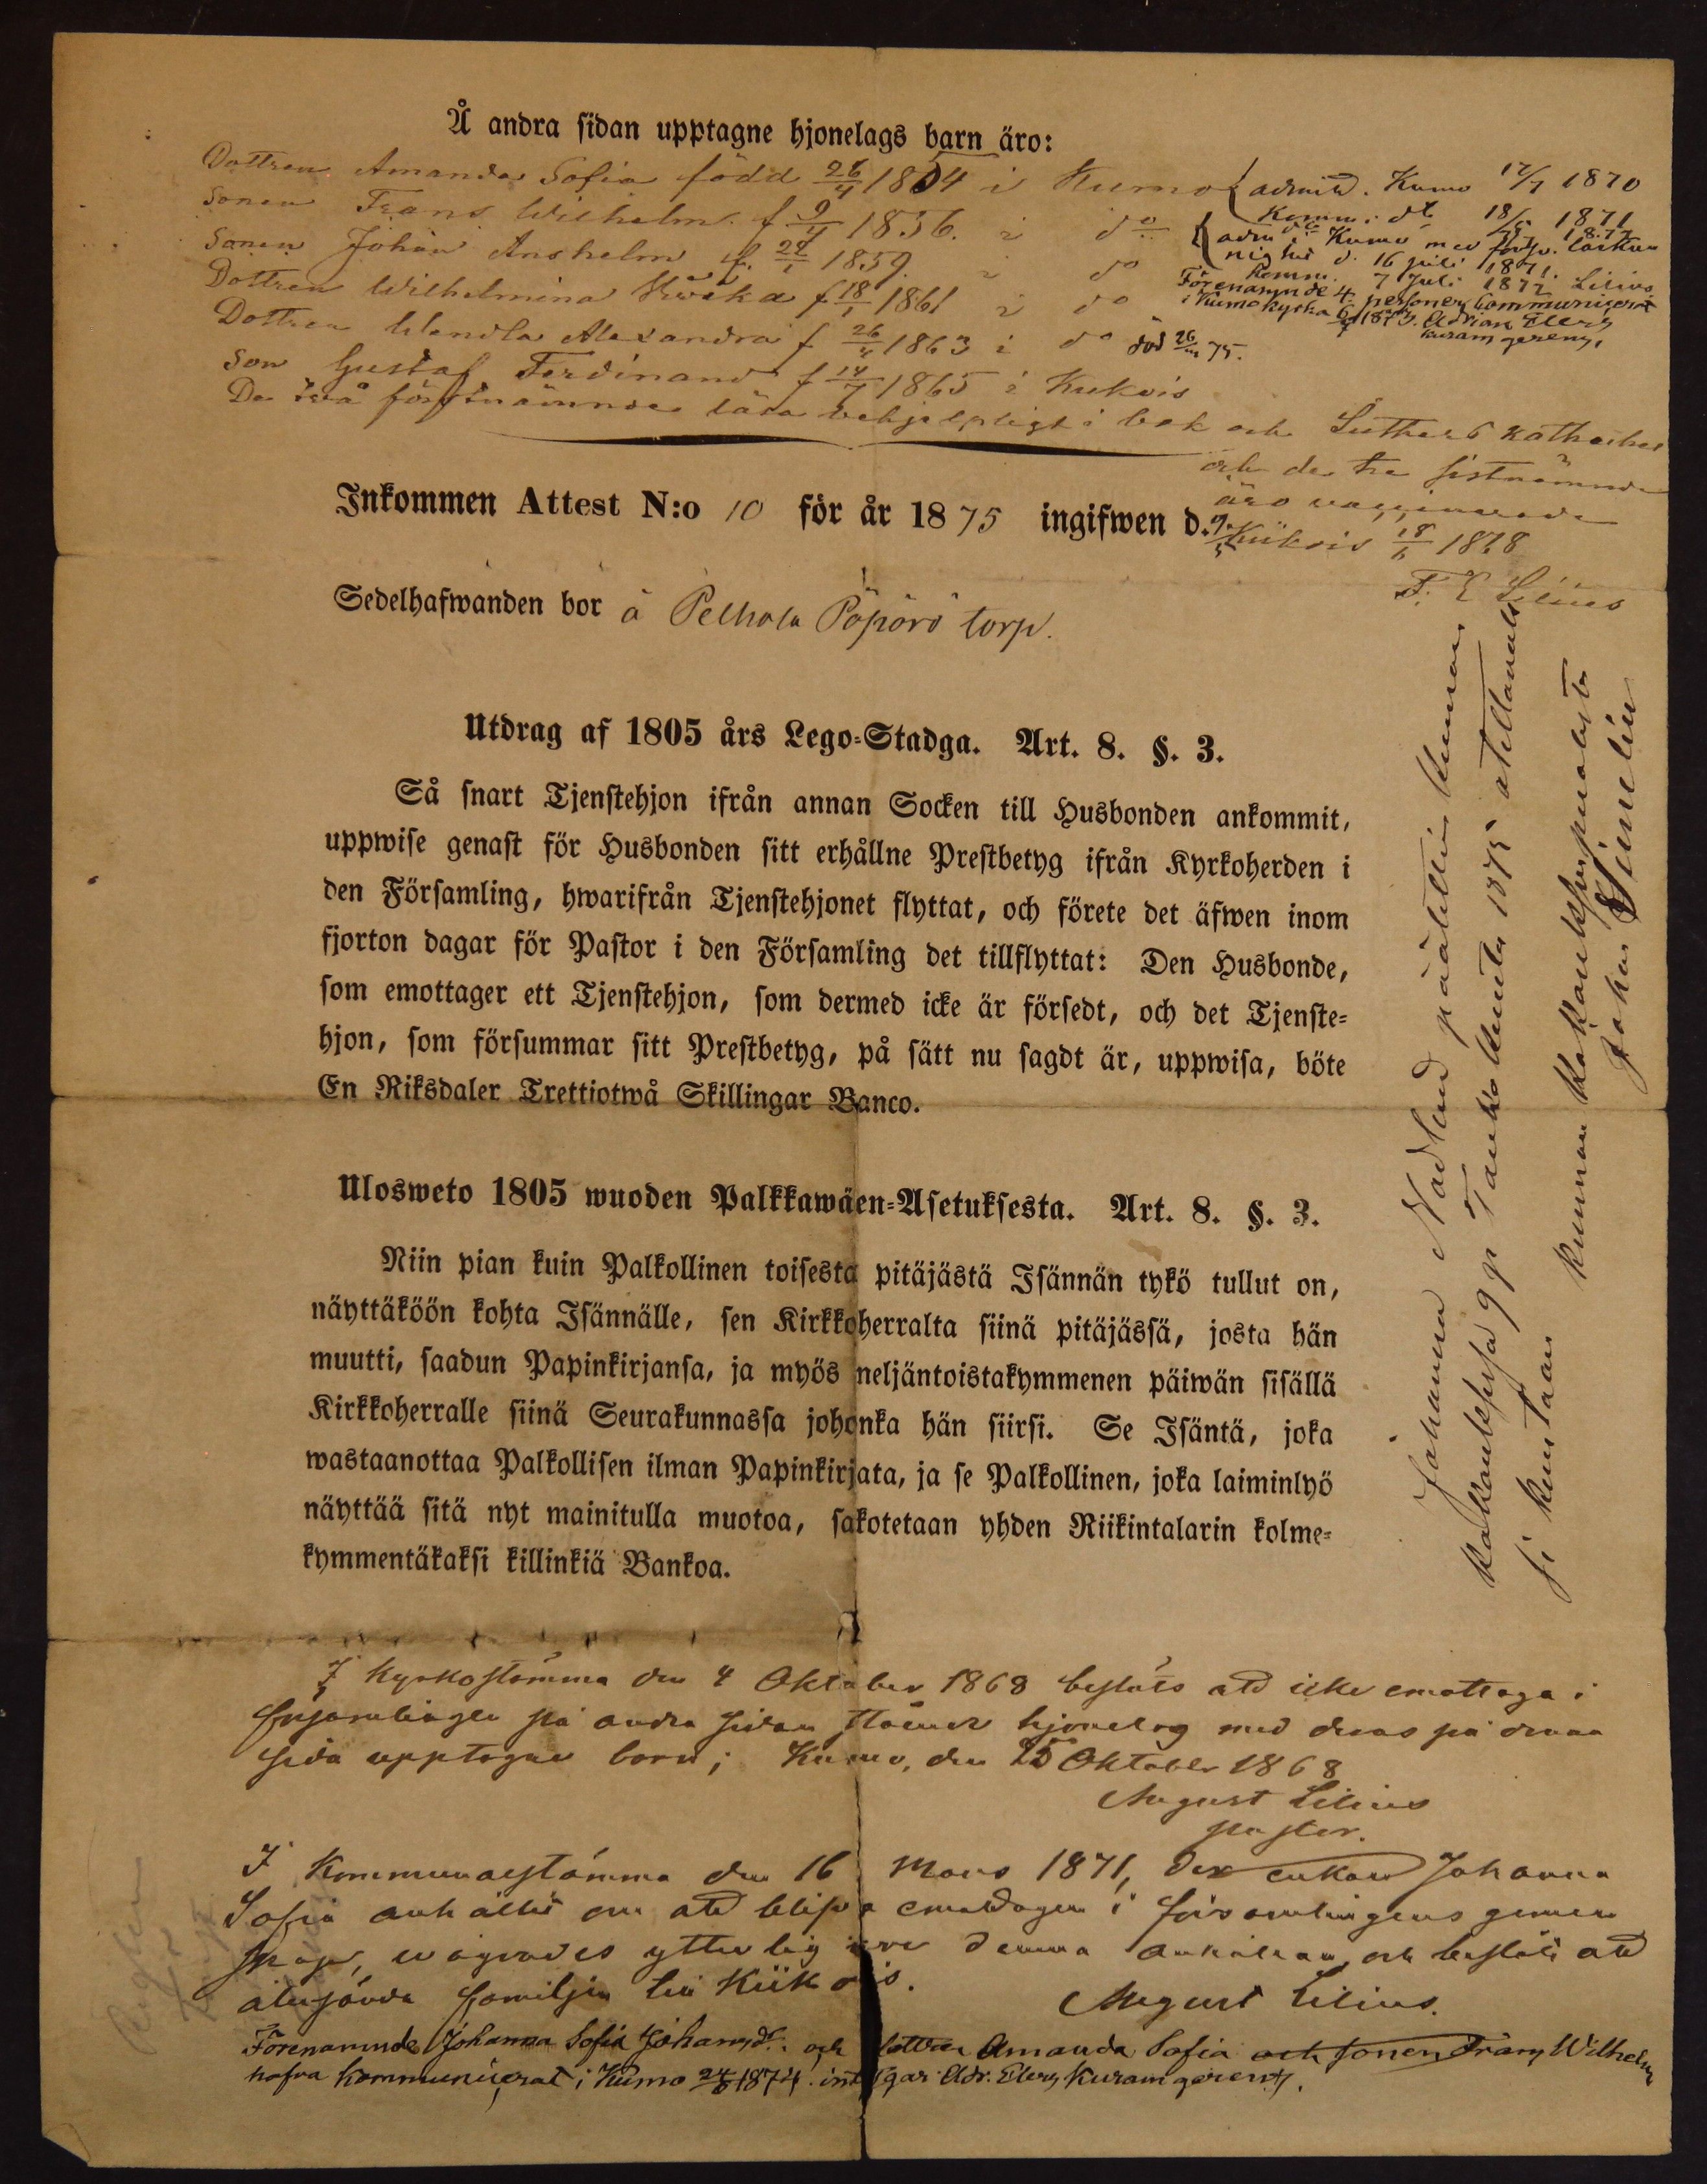 Å andra sidan upptagne hjonelags barn äro:
Dottren Amanda Sofia född 26/4 1854 i Kumo
Sonen Frans Wilhelm f 9/4 1856. i do
Sonen Johan Anshelm f. 1859. i do
Dottren Wilhelmina f 18/1 1861 i do
Dottren Wendla Alexandra f 26/4 1863 i do död 26/ 75.
Son Gustaf Ferdinand f 14/7 1865 i Kiikois
admitt. Kumo 17/7 1870
Komm. 18/ 1871
adm i Kumo med förhp. 
nighet d. 16 juli 1871.
Komm. 7 Juli 1872 Lilius
Förenämnde 4 personer Communicerat
i Kumo kyrka 1873. Adrian Elers
kuram gerens.
De två förstnämnde läsa behjelpligt i bok och Luthers kathehes
och de tre sistnämnde
äro vaccinerade
Kiikois 18/6 1868
F. E. Lilius
Inkommen Attest N:o 10 för år 1875 ingifwen d.
Sedelhafwanden bor å Pelhola Pöpörö torp.
Utdrag af 1805 års Lego-Stadga. Art. 8. §. 3.
Så snart Tjenstehjon ifrån annan Socken till Husbonden ankommit,
uppwise genast för Husbonden sitt erhållne Prestbetyg ifrån Kyrkoherden i
den Församling, hwarifrån Tjenstehjonet flyttat, och förete det äfwen inom
fjorton dagar för Pastor i den Församling det tillflyttat: Den Husbonde,
som emottager ett Tjenstehjon, som dermed icke är försedt, och det Tjenste-
hjon, som försummar sitt Prestbetyg, på sätt nu sagdt är, uppwisa, böte
En Riksdaler Trettiotwå Skillingar Banco.
Ulosweto 1805 wuoden Palkkawäen-Asetuksesta. Art. 8. §. 3.
Niin pian kuin Palkollinen toisesta pitäjästä Isännän tykö tullut on,
näyttäköön kohta Isännälle, sen Kirkkoherralta siinä pitäjässä, josta hän
muutti, saadun Papinkirjansa, ja myös neljäntoistakymmenen päiwän sisällä
Kirkkoherralle siinä Seurakunnassa johonka hän siirsi. Se Isäntä, joka
wastaanottaa Palkollisen ilman Papinkirjata, ja se Palkollinen, joka laiminlyö
näyttää sitä nyt mainitulla muotoa, sakotetaan yhden Riikintalarin kolme-
kymmentäkaksi killinkiä Bankoa.
Johanna päätettiin kunnan
kokouksessa 9 p Toukokuuta 1875 
kunnan kokouksen puolesta
Johan
I Kyrkostämma den 4 Oktober 1868 beslöts att icke emottaga i
församlingen på andra sidan stående hjonelag med deras på denna
sida upptagne barn; Kumo, den 15 Oktober 1868
August Lilius
pastor.
I Kommunalstämma den 16 Mars 1871, der enkan Johanna
Sofia anhållit om att blifva emottagen i församlingens gemen
skap, ytterligare denna anhållan, och beslöts att
familjen till Kiikois.
August Lilius.
Förenämnde Johanna Sofia Johansdr. och dottren Amanda Sofia och sonen Frans Wilhelm
hafva kommunicerat i Kumo 24/ 1874. intygar Adr. Elers Kuram gerens.